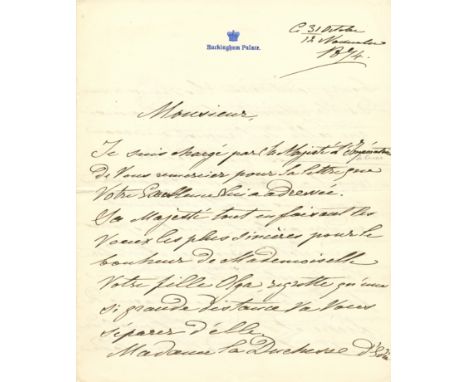 Ce 31 Octobre
12 Novembre
1874.
Buckingham Palace.
Monsieur,
Je suis chargé par Sa Majesté l'Impératrice
de Vous remercier pour la lettre que
Votre Excellence lui a adressée.
Sa Majesté tout en faisant les
voeux les plus sincères pour le
bonheur de Mademoiselle
Votre fille Olga, regrette qu'une
si grande distance va Vous
séparer d'elle.
Madame la Duchesse